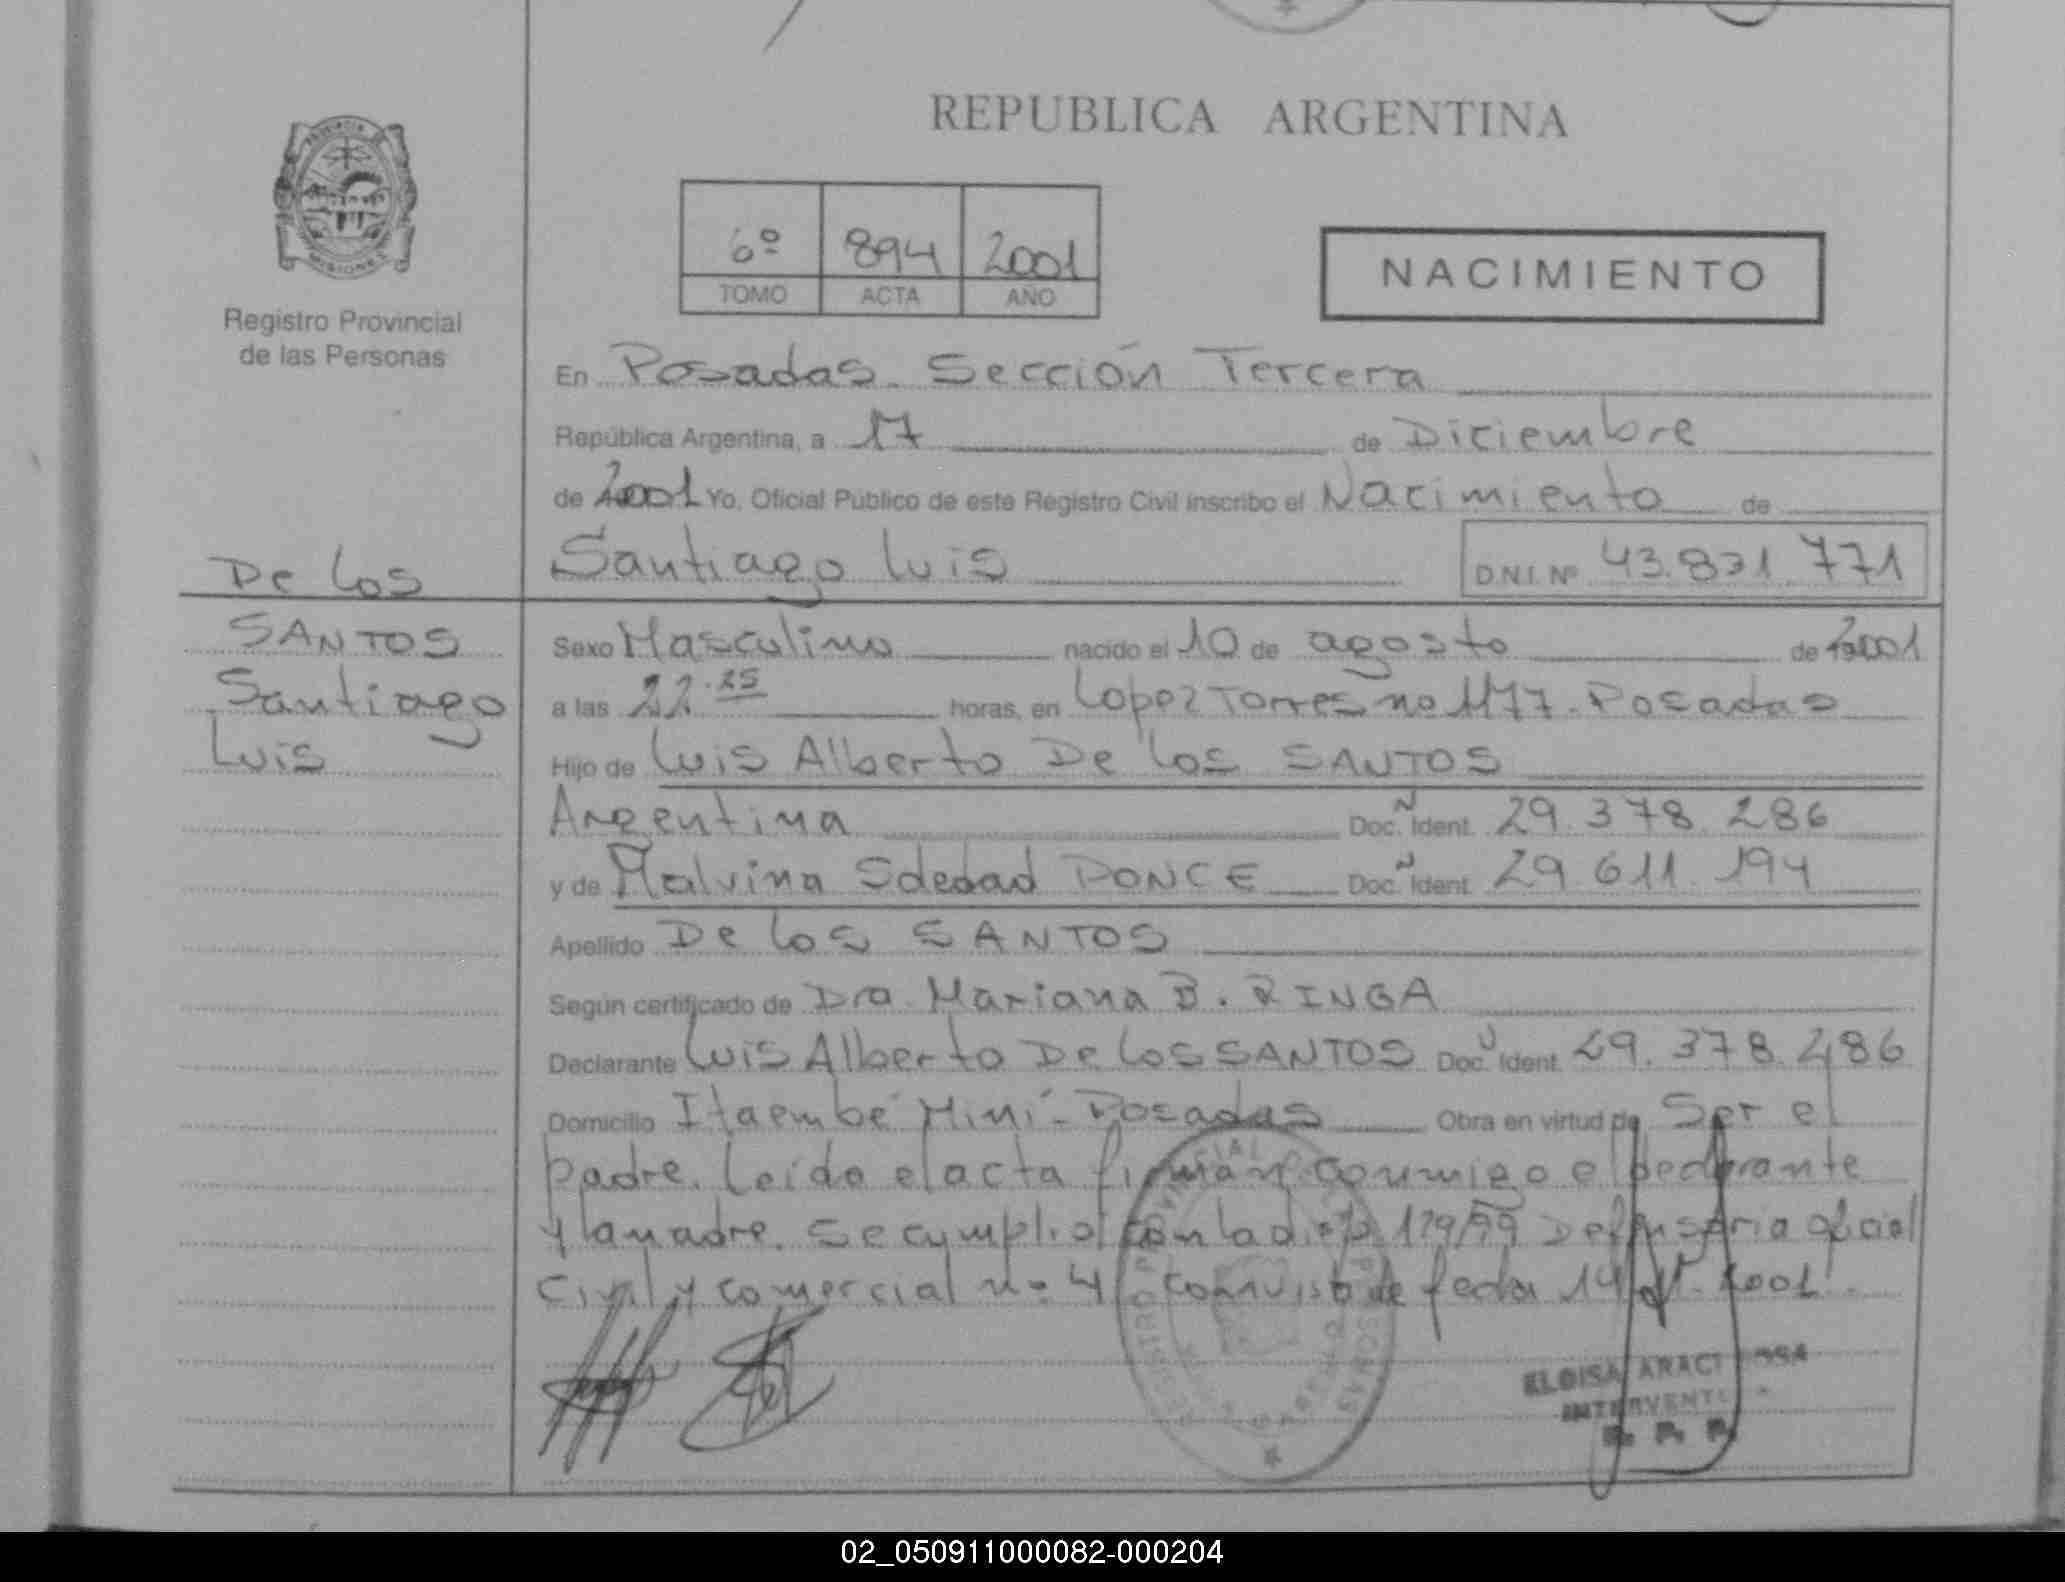 REPUBLICA ARGENTINA
PROVINCIA
MISIONES
Registro Provincial
de las Personas
6º 894 2001
TOMO ACTA AÑO
NACIMIENTO
En Posadas. Sección Tercera
República Argentina, a 17 de Diciembre
de 2001 Yo, Oficial Público de este Registro Civil inscribo el Nacimiento de
Santiago Luis D.N.I. Nº 43.831.771
De los
SANTOS
Santiago
Luis
Sexo Masculino nacido el 10 de agosto de 2001
a las 22.25 horas, en Lopez Torres nº 1177. Posadas
Hijo de Luis Alberto De los SANTOS
Argentina Doc. Ident. 29.378.286
y de Malvina Soledad PONCE Doc. Ident. 29.611.194
Apellido De los SANTOS
Según certificado de Dra. Mariana B. RINGA
Declarante Luis Alberto De los SANTOS Doc. Ident. 29.378.286
Domicilio Itaembé Miní - Posadas Obra en virtud de Ser el
padre. Leída el acta firman conmigo el Declarante
y la madre. Se cumplió con la disp. 179/99 Defensoria oficial
Civil y comercial nº 4 con visto de fecha 14 2001.
REGISTRO PROVINCIAL DE LAS PERSONAS
ELOISA ARACI
INTERVENT
R. P. P.
02_050911000082-000204